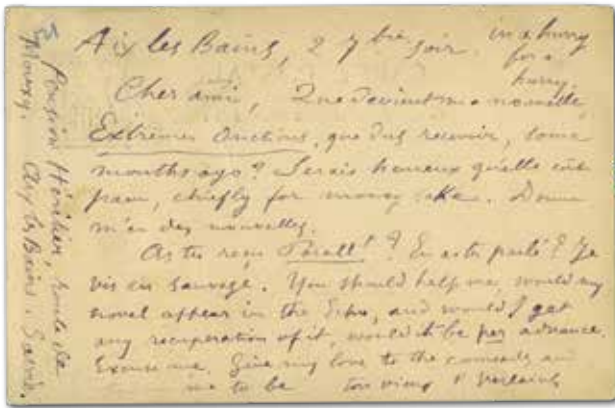 Aix les Bains, 2 7bre soir. in a hurry
for a
hurry
Cher ami, Que devient ma nouvelle
Extrêmes Onctions, que dus recevoir, some
months ago? Serais heureux qu'elle eût
paru, chiefly for money sake. Donne
m'en des nouvelles.
As tu reçu Parallt? En as tu parlé? Je
vis en sauvage. You should help me, would my
novel appear in the Echo, and would I get
any recuperation of it, would it be per advance.
Excuse me. Give my love to the comrads and
me to be ton vieux P Verlaine
Pension Héritier, route de
Mouxy. Aix les Bains. Savoie.